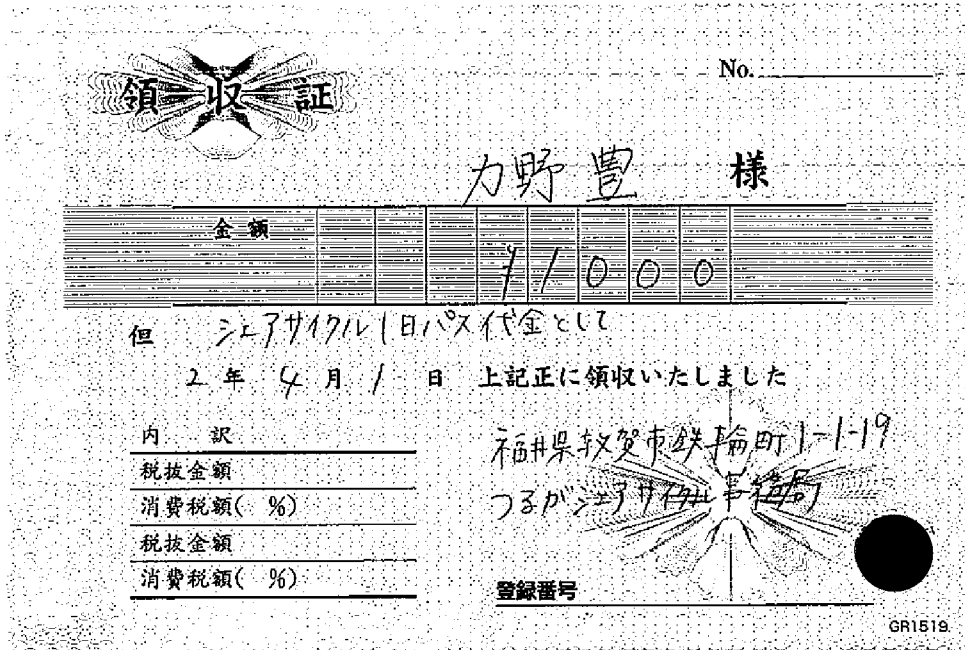 領収証
No.
力野豊 様
金額
¥1000
但 シェアサイクル1日パス代金として
2年4月1日 上記正に領収いたしました
内訳
税抜金額
消費税額( %)
税抜金額
消費税額( %)
福井県敦賀市鉄輪町1-1-19
つるがシェアサイクル事務局
登録番号
GR1519